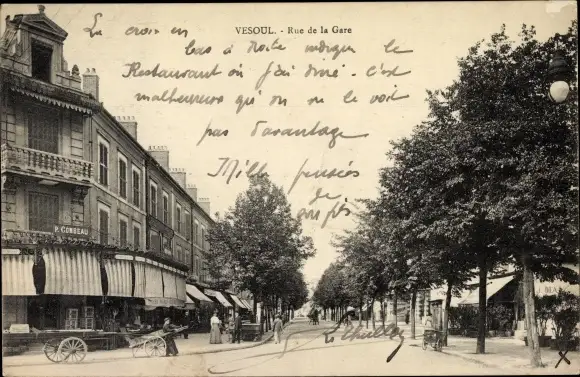 VESOUL. - Rue de la Gare
La croix en
bas à droite marque le
Restaurant où j'ai diné - c'est
malheureux qu'on ne le voit
pas davantage
Mille pensées
de
ton fils
P. GONDEAU
x